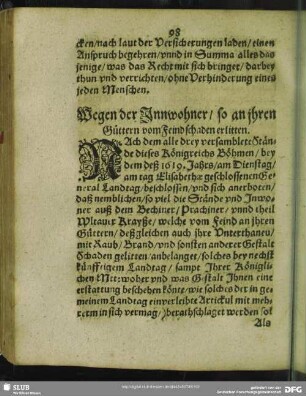 98
cken/nach laut der Versicherungen laden/einen
Anspruch begehren/vnnd in Summa alles das
jenige/was das Recht mit sich bringet/darbey
thun vnd verrichten/ohne Verhinderung eines
jeden Menschen.
Wegen der Innwohner/so an jhren
Güttern vom Feind schaden erlitten.
NAch dem alle drey versamblete Stän-
de dieses Königreichs Böhmen/bey
dem deß 1619. Jahrs/am Dienstag/
am tag Elisabethæ geschlossenen Ge-
neral Landtag/beschlossen/vnd sich anerboten/
daß nemblichen/so viel die Stände vnd Inwo-
ner auß dem Bechiner/Prachiner/vnnd theil
Wltauer Krayße/welche vom Feind an jhren
Güttern/deßgleichen auch jhre Vnterthanen/
mit Raub/Brand/vnd sonsten anderer Gestalt
Schaden gelitten/anbelanget/solches bey nechst
künfftigem Landtag/sampt Ihrer Königli-
chen Mtt: woher vnd was Gestalt Ihnen eine
erstattung beschehen könte/wie solches der in ge-
meinem Landtag einverleibte Artickul mit meh-
rerm in sich vermag/berathschlaget werden sol
Als
SLUB
Wir führen Wissen.